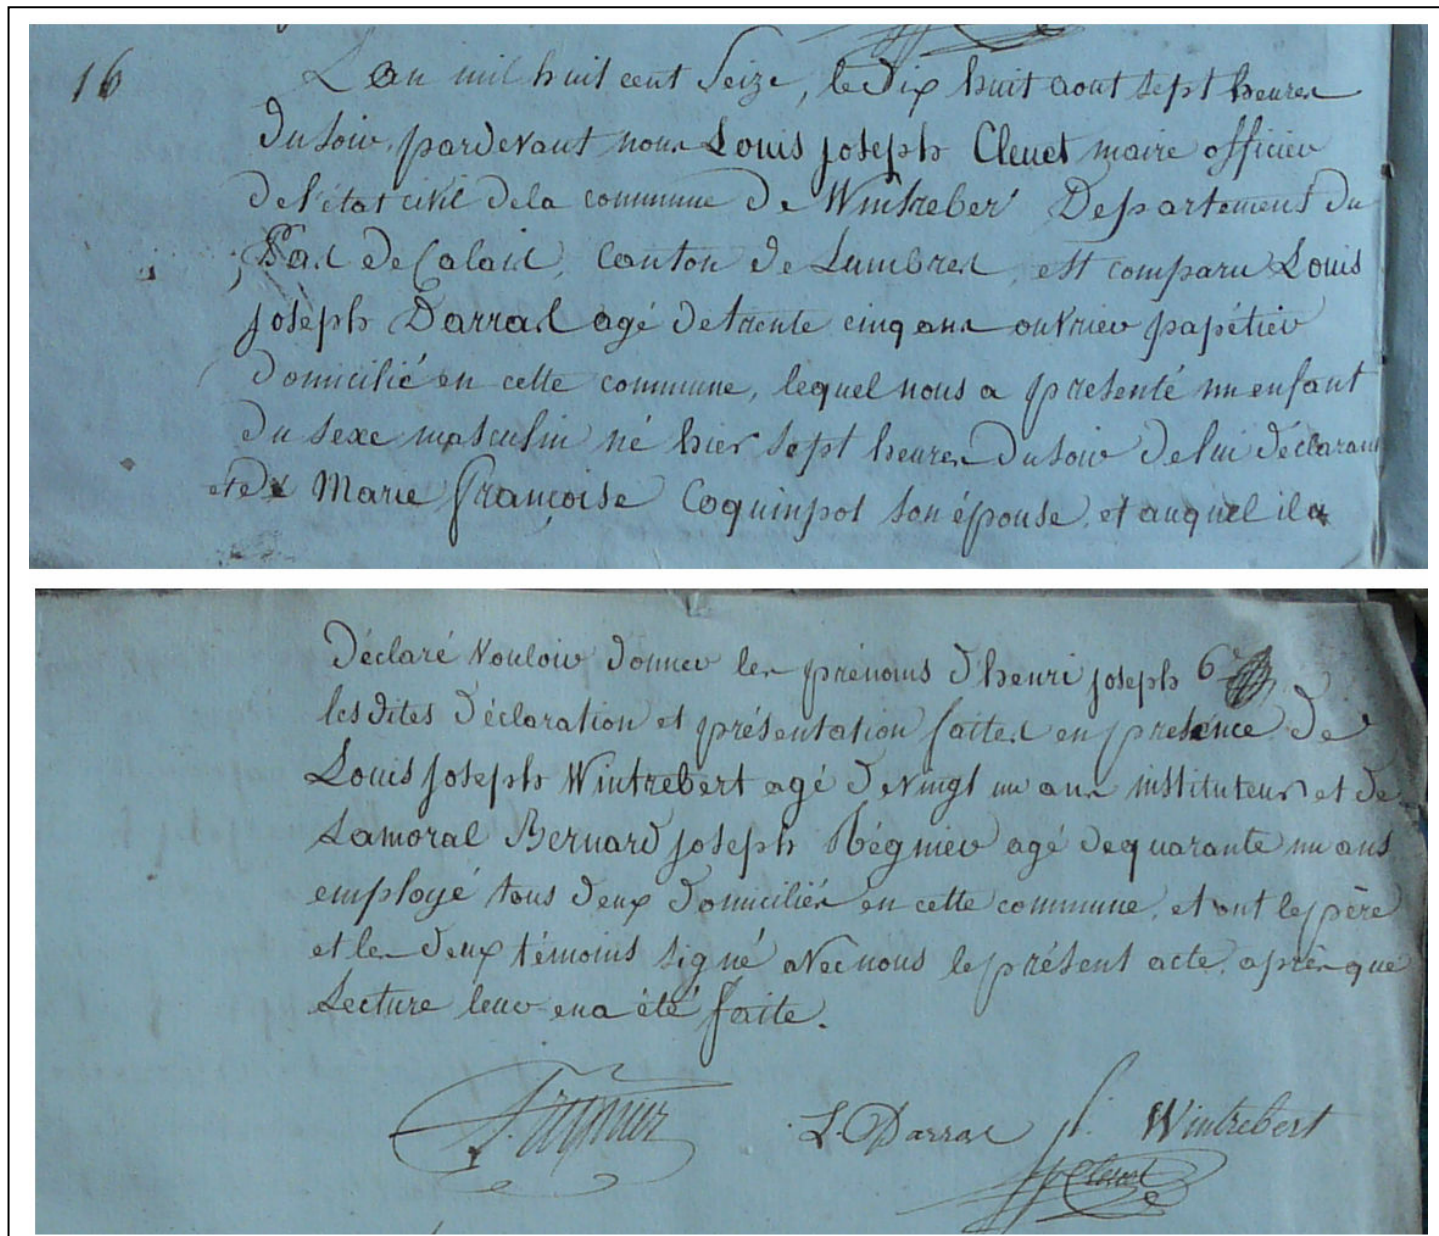 16 L'an mil huit cent Seize, le dix huit aout sept heures
du soir, pardevant nous Louis joseph Cleuet maire officier
de l'état civil de la commune de Wintreber Departement du
Pas de Calais, Canton de Lumbres, est comparu Louis
joseph Darras agé de trente cinq ans ouvrier papétier
domicilié en cette commune, lequel nous a présenté un enfant
du sexe masculin né hier sept heures du soir de lui déclarant
et de Marie françoise Coquinpot son épouse, et auquel il a
Déclaré Vouloir donner les prénoms d'henri joseph 6
les dites déclaration et présentation faites en présence de
Louis joseph Wintrebert agé de vingt un ans instituteur et de
Lamoral Bernard joseph Régnier agé de quarante un ans
employé tous deux domiciliés en cette commune, et ont le père
et les deux témoins signé avec nous le présent acte, après que
Lecture leur en a été faite.
L. Darras Wintrebert
Cleuet